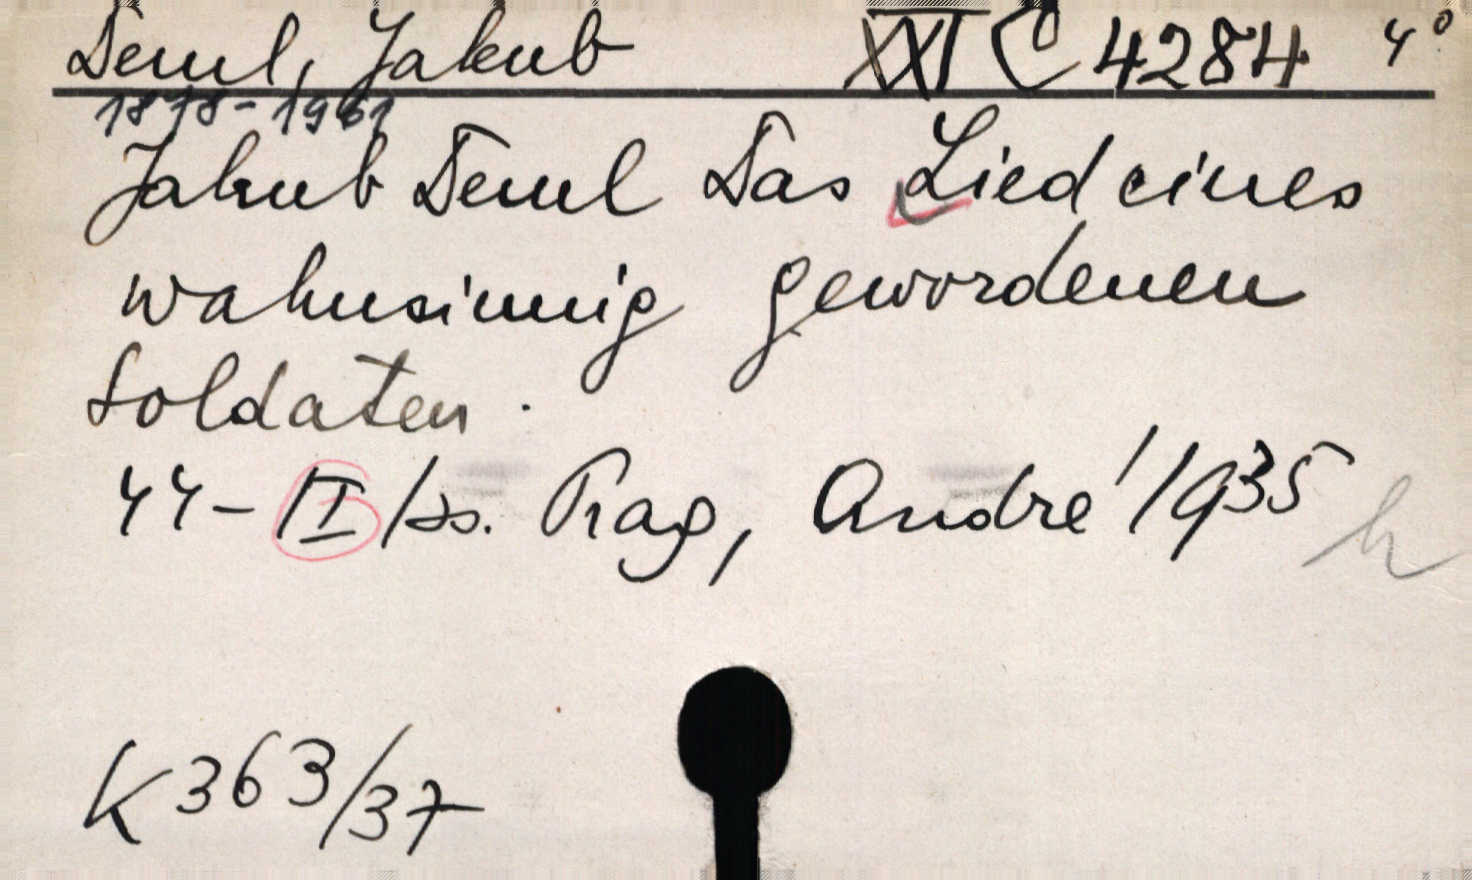 Deml, Jakub XXI C 4284 4°
1878-1961
Jakub Deml Das Lied eines
wahnsinnig gewordenen
Soldaten.
44-/I/ss. Prag, André 1935
K 363/37